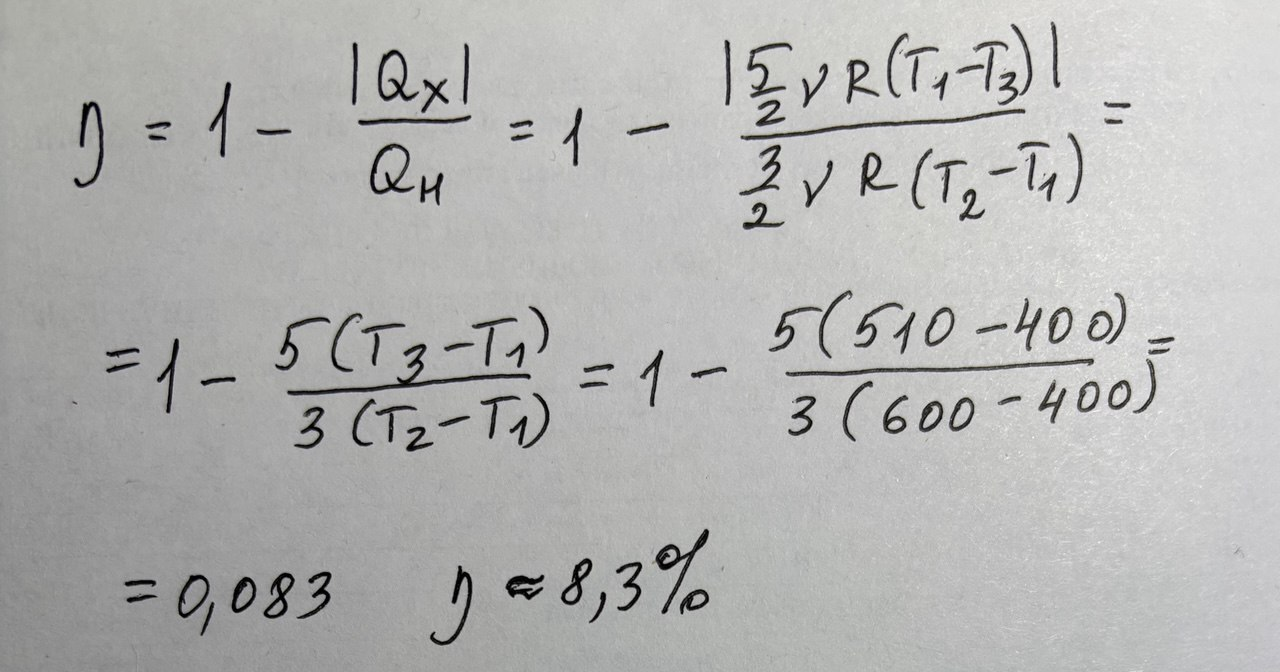 η = 1 - |Qх| / Qн = 1 - |5/2 ν R (T₁-T₃)| / 3/2 ν R (T₂-T₁) =
= 1 - 5(T₃-T₁) / 3(T₂-T₁) = 1 - 5(510-400) / 3(600-400) =
= 0,083 η ≈ 8,3%